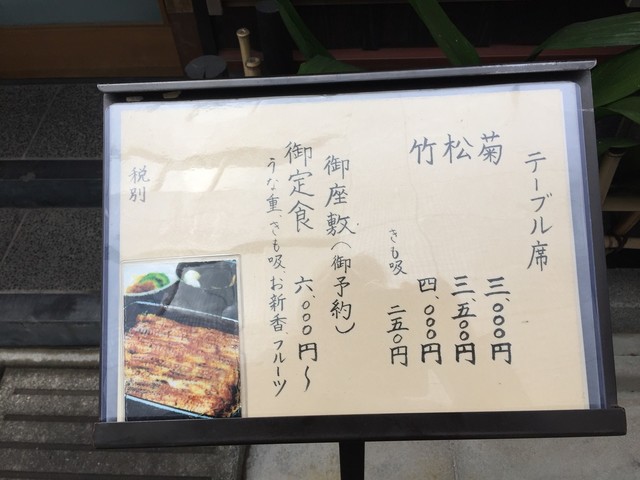 テーブル席
菊 三、〇〇〇円
松 三、五〇〇円
竹 四、〇〇〇円
きも吸 二五〇円
御座敷(御予約)
御定食 六、〇〇〇円〜
うな重、きも吸、お新香、フルーツ
税別